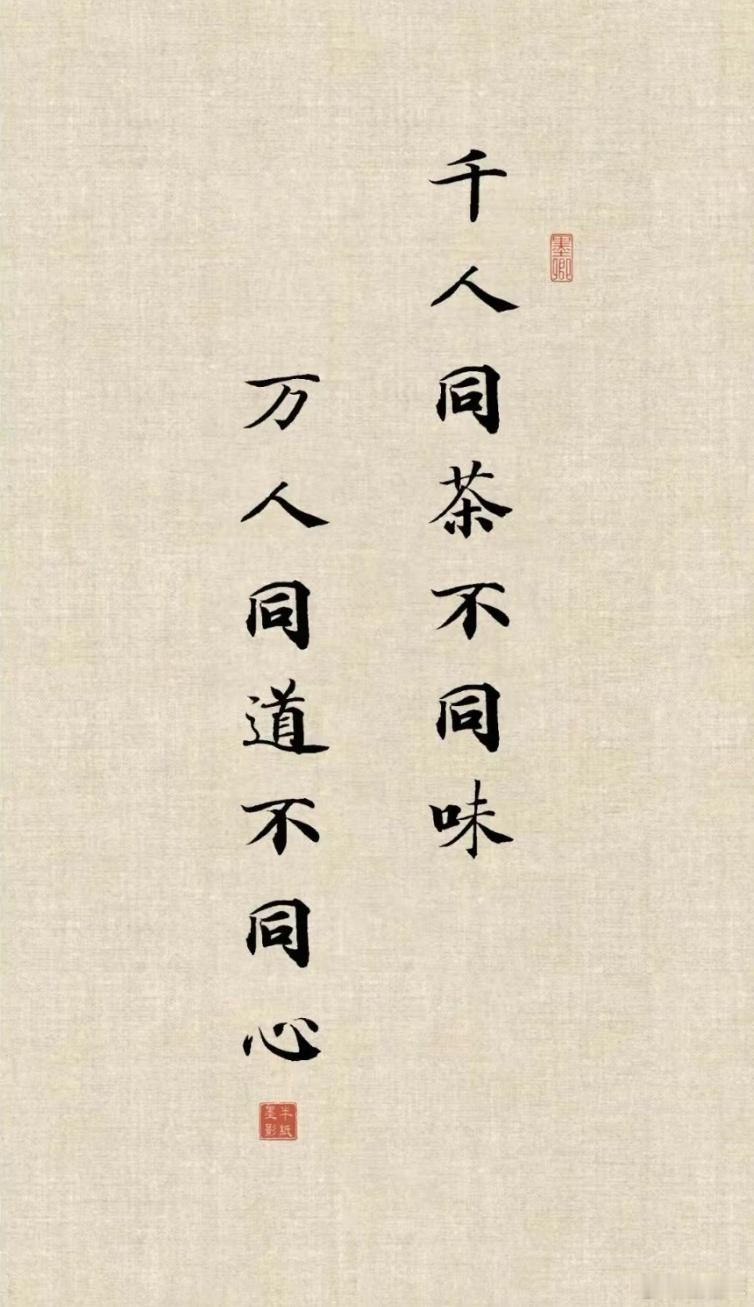 千人同茶不同味
墨卿
万人同道不同心
半纸墨影